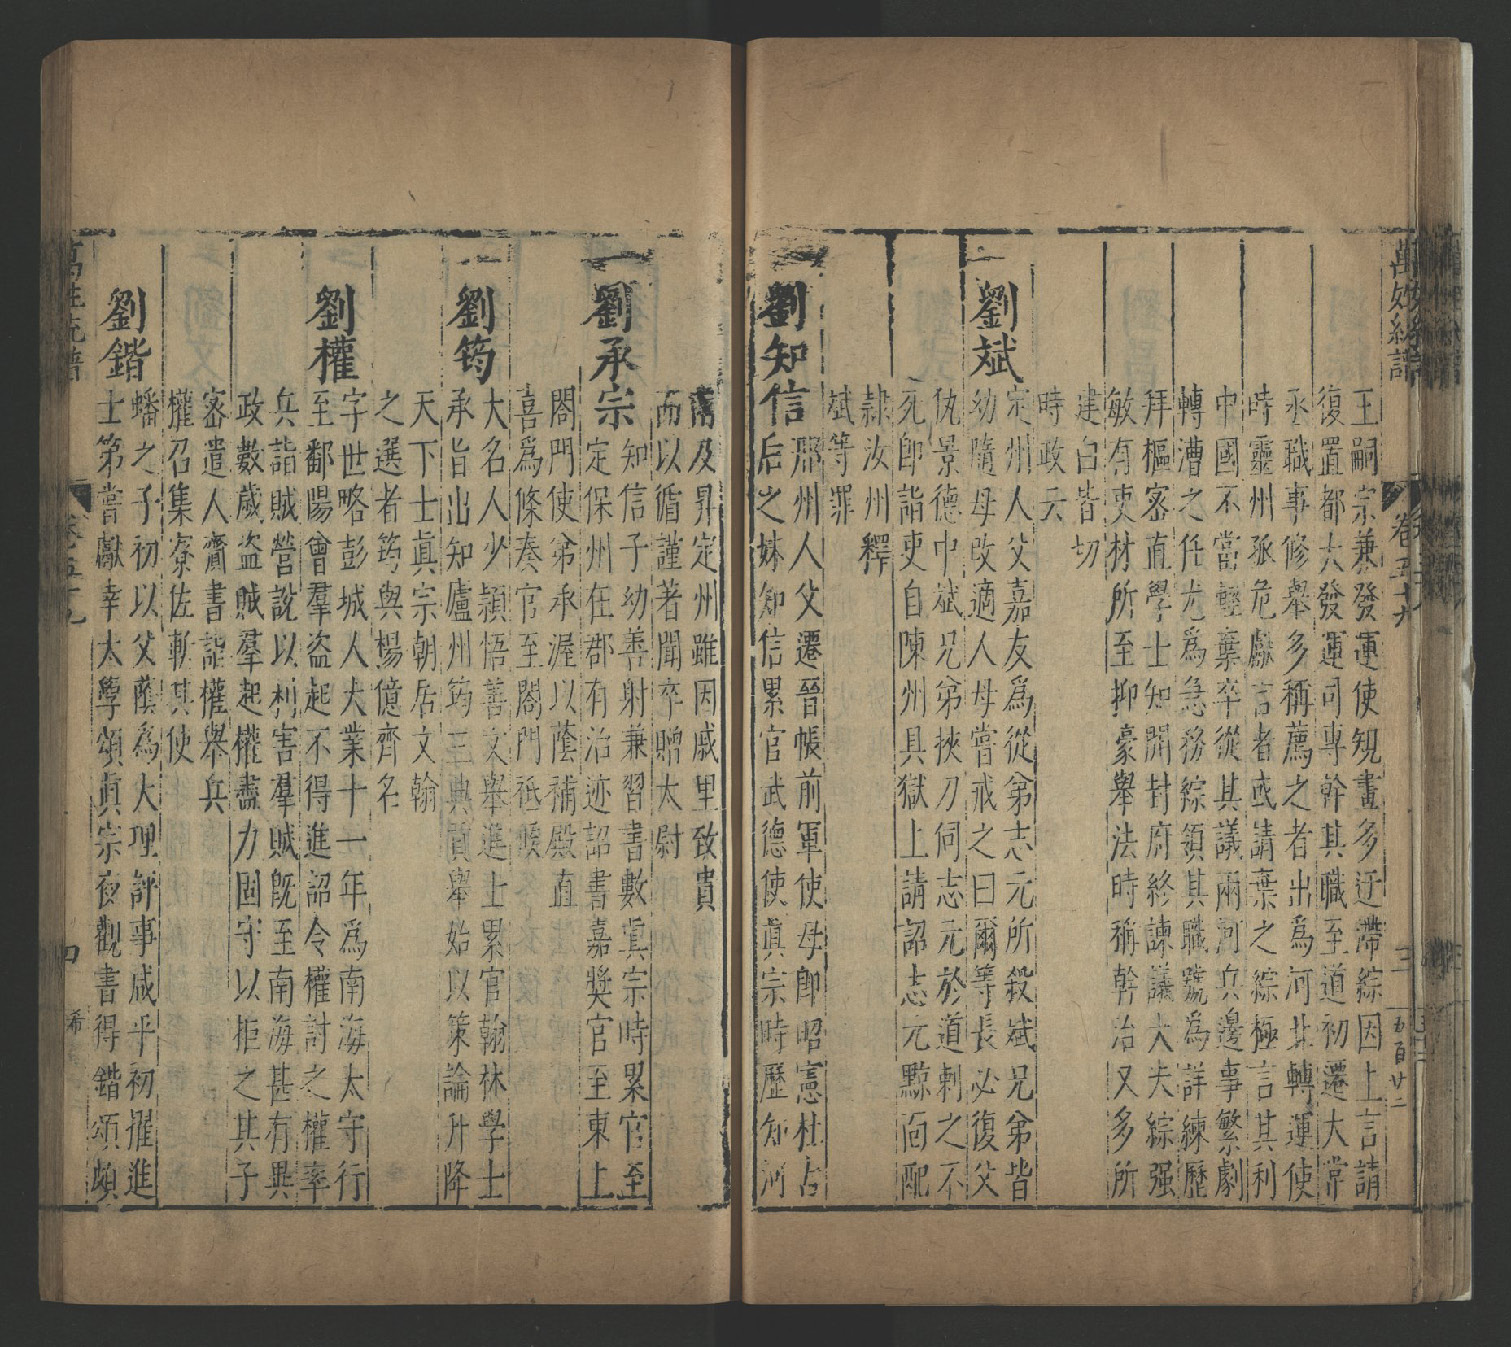 萬姓統譜 卷五十九 三 五百廿二
王嗣宗兼發運使規畫多迂滯綜因上言請
復置都大發運司專幹其職至道初遷大常
丞職事修舉多稱薦之者出為河北轉運使
時靈州孤危獻言者或請棄之綜極言其利
中國不當輕棄卒從其議兩河兵邊事繁劇
轉漕之任尤為急務綜領其職號為詳練歷
拜樞密直學士知開封府終諫議大夫綜强
敏有吏材所至抑豪舉法時稱幹治又多所
建白皆切
時政云
劉斌
定州人父嘉友為從弟志元所殺斌兄弟皆
幼隨母改適人母嘗戒之曰爾等長必復父
仇景德中斌兄弟挾刀伺志元於道刺之不
死即詣吏自陳州具獄上請詔志元黥面配
隸汝州釋
斌等罪
劉知信
邢州人父遷晉帳前軍使母即昭憲杜占
后之妹知信累官武德使真宗時歷知河
南及昇定州雖因戚里致貴
而以循謹著聞卒贈太尉
劉承宗
知信子幼善射兼習書數真宗時累官至
定保州在郡有治迹詔書嘉獎官至東上
閤門使弟承渥以蔭補殿直
喜為條奏官至閤門祗候
劉筠
大名人少穎悟善文舉進士累官翰林學士
承旨出知廬州筠三典貢舉始以策論升降
天下士真宗朝居文翰
之選者筠與楊億齊名
劉權
字世略彭城人大業十一年為南海太守行
至鄱陽會羣盜起不得進詔令權討之權率
兵詣賊營說以利害羣賊既至南海甚有異
政數歲盜賊羣起權盡力固守以拒之其子
密遣人齎書詣權舉兵
權召集寮佐斬其使
劉鍇
蟠之子初以父蔭為大理評事咸平初擢進
士第嘗獻幸太學頌真宗夜觀書得鍇頌頗
萬姓統譜 卷五十九 四 希